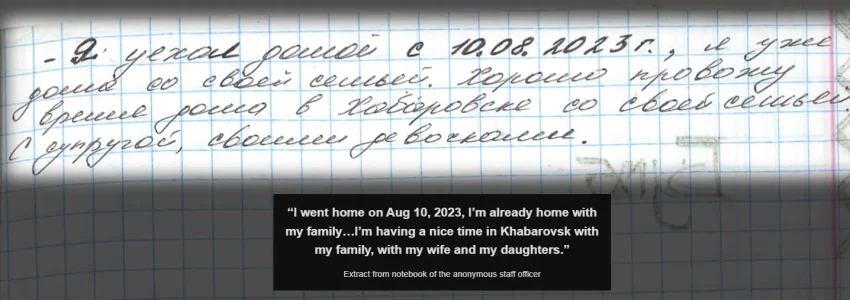 - Я уехал домой с 10.08.2023г., я уже
дома со своей семьей. Хорошо провожу
время дома в Хабаровске со своей семьей
с супругой, своими девочками.
“I went home on Aug 10, 2023, I’m already home with
my family…I’m having a nice time in Khabarovsk with
my family, with my wife and my daughters.”
Extract from notebook of the anonymous staff officer